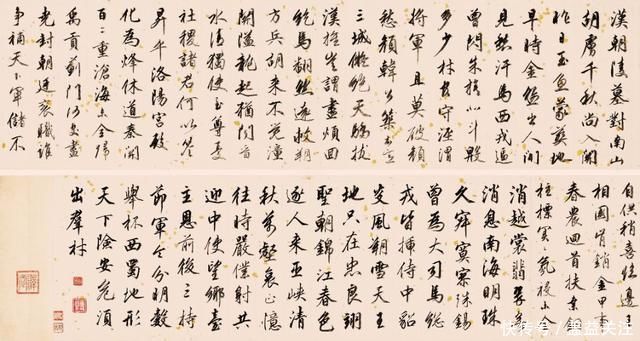 漢朝陵墓對南山
胡虜千秋尚入關
昨日玉魚蒙葬地
早時金盌出人間
見愁汗馬西戎逼
曾閃朱旗北斗殷
多少材官守涇渭
將軍且莫破
愁顏韓公本意築
三城擬絕天驕拔
漢旌豈謂盡煩回
紇馬翻然遠救朔
方兵胡來不覺潼
關隘龍起猶聞晉
水清獨使至尊憂
社稷諸君何以答
昇平洛陽宮殿
化為烽休道秦關
百二重滄海未全歸
禹貢薊門何處盡
堯封朝廷袞職誰
爭補天下軍儲不
自供稍喜臨邊王
相國肯銷金甲事
春農迴首扶桑銅
柱標冥冥氛祲未全
消越裳翡翠無
消息南海明珠
久寂寥殊錫
曾為大司馬總
戎皆插侍中貂
炎風朔雪天王
地只在忠良翊
聖朝錦江春色
逐人來巫峽清
秋萬壑哀正憶
往時嚴僕射共
迎中使望鄉臺
主恩前後三持
節軍令分明數
舉杯西蜀地形
天下險安危須
出群材
快传号/墨益关注